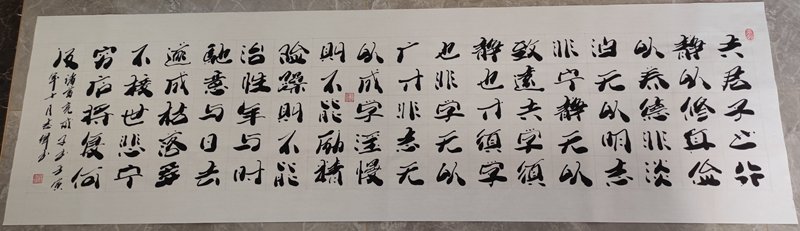 夫君子之行
静以修身俭
以养德非淡
泊无以明志
非宁静无以
致远夫学须
静也才须学
也非学无以
广才非志无
以成学淫慢
则不能励精
险躁则不能
治性年与时
驰意与日去
遂成枯落多
不接世悲守
穷庐将复何
及
诸葛亮诫子书壬寅
年十月书